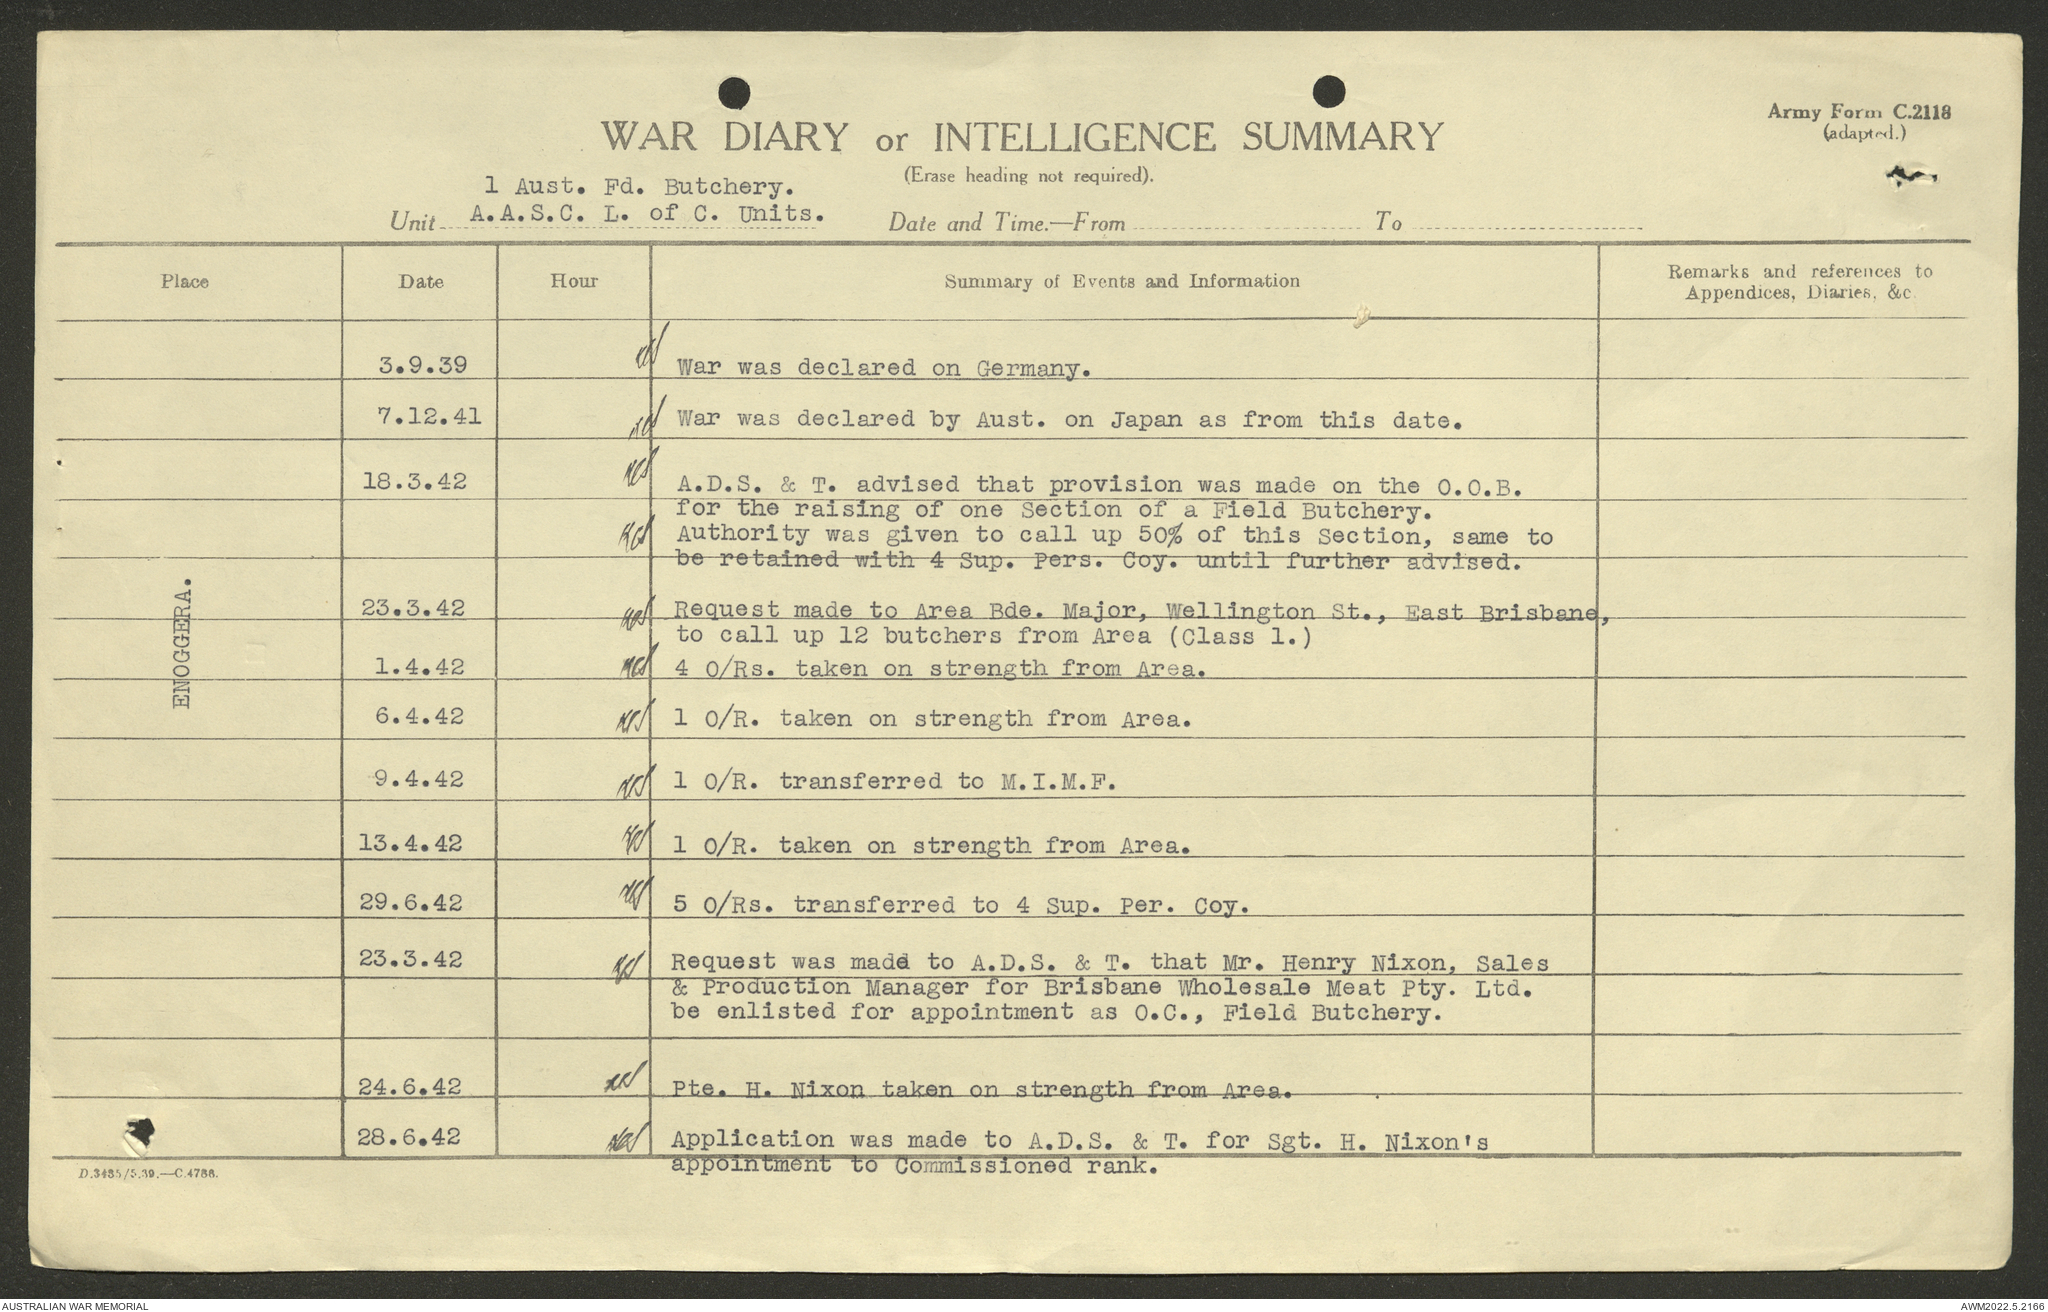 Army Form C.2118
(adapted.)
WAR DIARY or INTELLIGENCE SUMMARY
(Erase heading not required).
1 Aust. Fd. Butchery.
Unit A.A.S.C. L. of C. Units. Date and Time.—From To
Place Date Hour Summary of Events and Information Remarks and references to
Appendices, Diaries, &c.
ENOGGERA.
3.9.39 War was declared on Germany.
7.12.41 War was declared by Aust. on Japan as from this date.
18.3.42 A.D.S. & T. advised that provision was made on the O.O.B.
for the raising of one Section of a Field Butchery.
Authority was given to call up 50% of this Section, same to
be retained with 4 Sup. Pers. Coy. until further advised.
23.3.42 Request made to Area Bde. Major, Wellington St., East Brisbane,
to call up 12 butchers from Area (Class 1.)
1.4.42 4 O/Rs. taken on strength from Area.
6.4.42 1 O/R. taken on strength from Area.
9.4.42 1 O/R. transferred to M.I.M.F.
13.4.42 1 O/R. taken on strength from Area.
29.6.42 5 O/Rs. transferred to 4 Sup. Per. Coy.
23.3.42 Request was made to A.D.S. & T. that Mr. Henry Nixon, Sales
& Production Manager for Brisbane Wholesale Meat Pty. Ltd.
be enlisted for appointment as O.C., Field Butchery.
24.6.42 Pte. H. Nixon taken on strength from Area.
28.6.42 Application was made to A.D.S. & T. for Sgt. H. Nixon's
appointment to Commissioned rank.
D.3485/5.39.—C.4788.
AUSTRALIAN WAR MEMORIAL AWM2022.5.2166